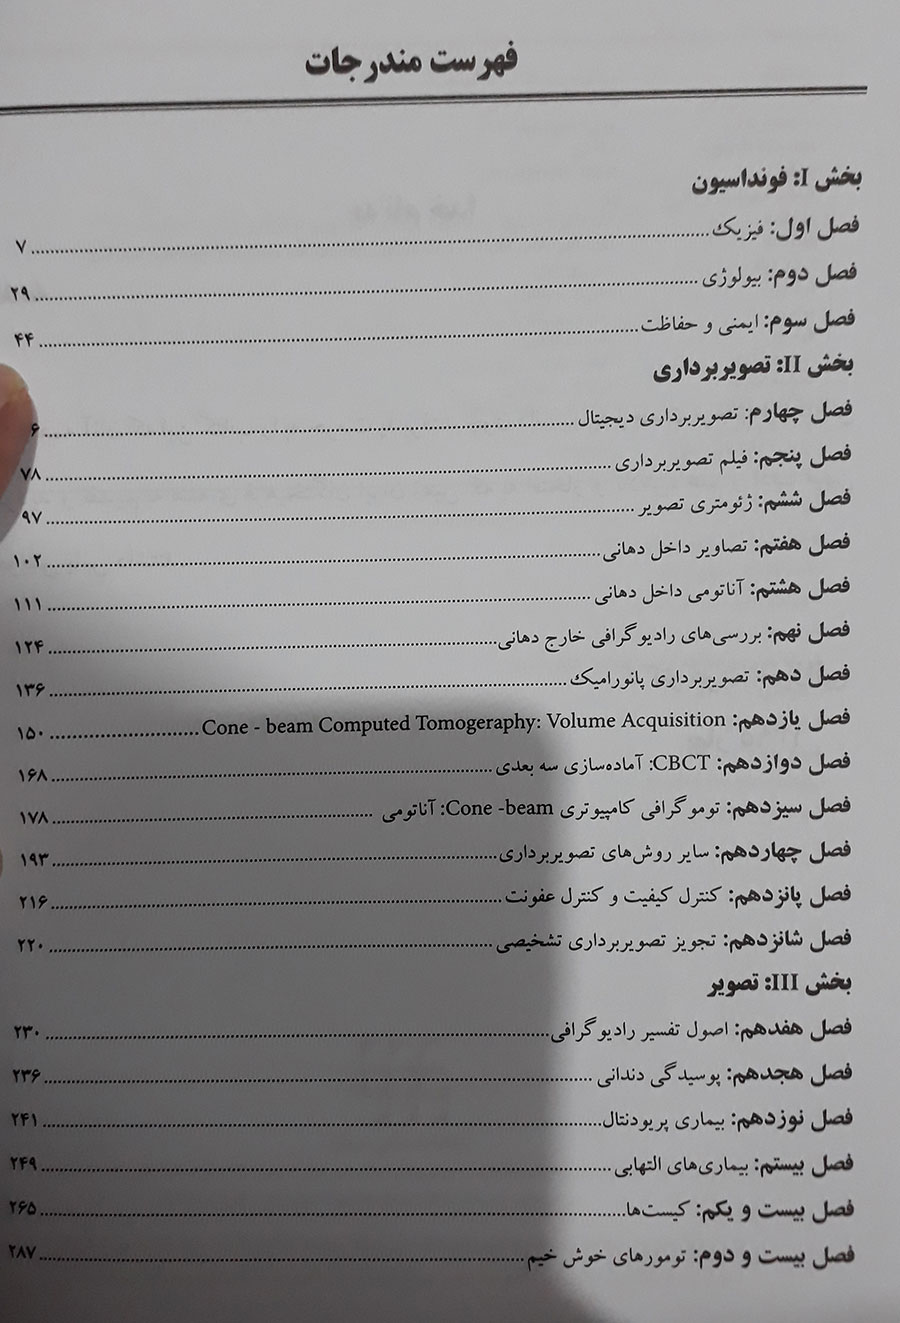 فهرست مندرجات
بخش I: فونداسیون
فصل اول: فیزیک ۷
فصل دوم: بیولوژی ۲۹
فصل سوم: ایمنی و حفاظت ۴۴
بخش II: تصویربرداری
فصل چهارم: تصویربرداری دیجیتال
فصل پنجم: فیلم تصویربرداری ۷۸
فصل ششم: ژئومتری تصویر ۹۷
فصل هفتم: تصاویر داخل دهانی ۱۰۲
فصل هشتم: آناتومی داخل دهانی ۱۱۱
فصل نهم: بررسی‌های رادیوگرافی خارج دهانی ۱۲۴
فصل دهم: تصویربرداری پانورامیک ۱۳۶
فصل یازدهم: Cone - beam Computed Tomogeraphy: Volume Acquisition ۱۵۰
فصل دوازدهم: CBCT: آماده‌سازی سه بعدی ۱۶۸
فصل سیزدهم: توموگرافی کامپیوتری Cone -beam: آناتومی ۱۷۸
فصل چهاردهم: سایر روش‌های تصویربرداری ۱۹۳
فصل پانزدهم: کنترل کیفیت و کنترل عفونت ۲۱۶
فصل شانزدهم: تجویز تصویربرداری تشخیصی ۲۲۰
بخش III: تصویر
فصل هفدهم: اصول تفسیر رادیوگرافی ۲۳۰
فصل هجدهم: پوسیدگی دندانی ۲۳۶
فصل نوزدهم: بیماری پریودنتال ۲۴۱
فصل بیستم: بیماری‌های التهابی ۲۴۹
فصل بیست و یکم: کیست‌ها ۲۶۵
فصل بیست و دوم: تومورهای خوش خیم ۲۸۷